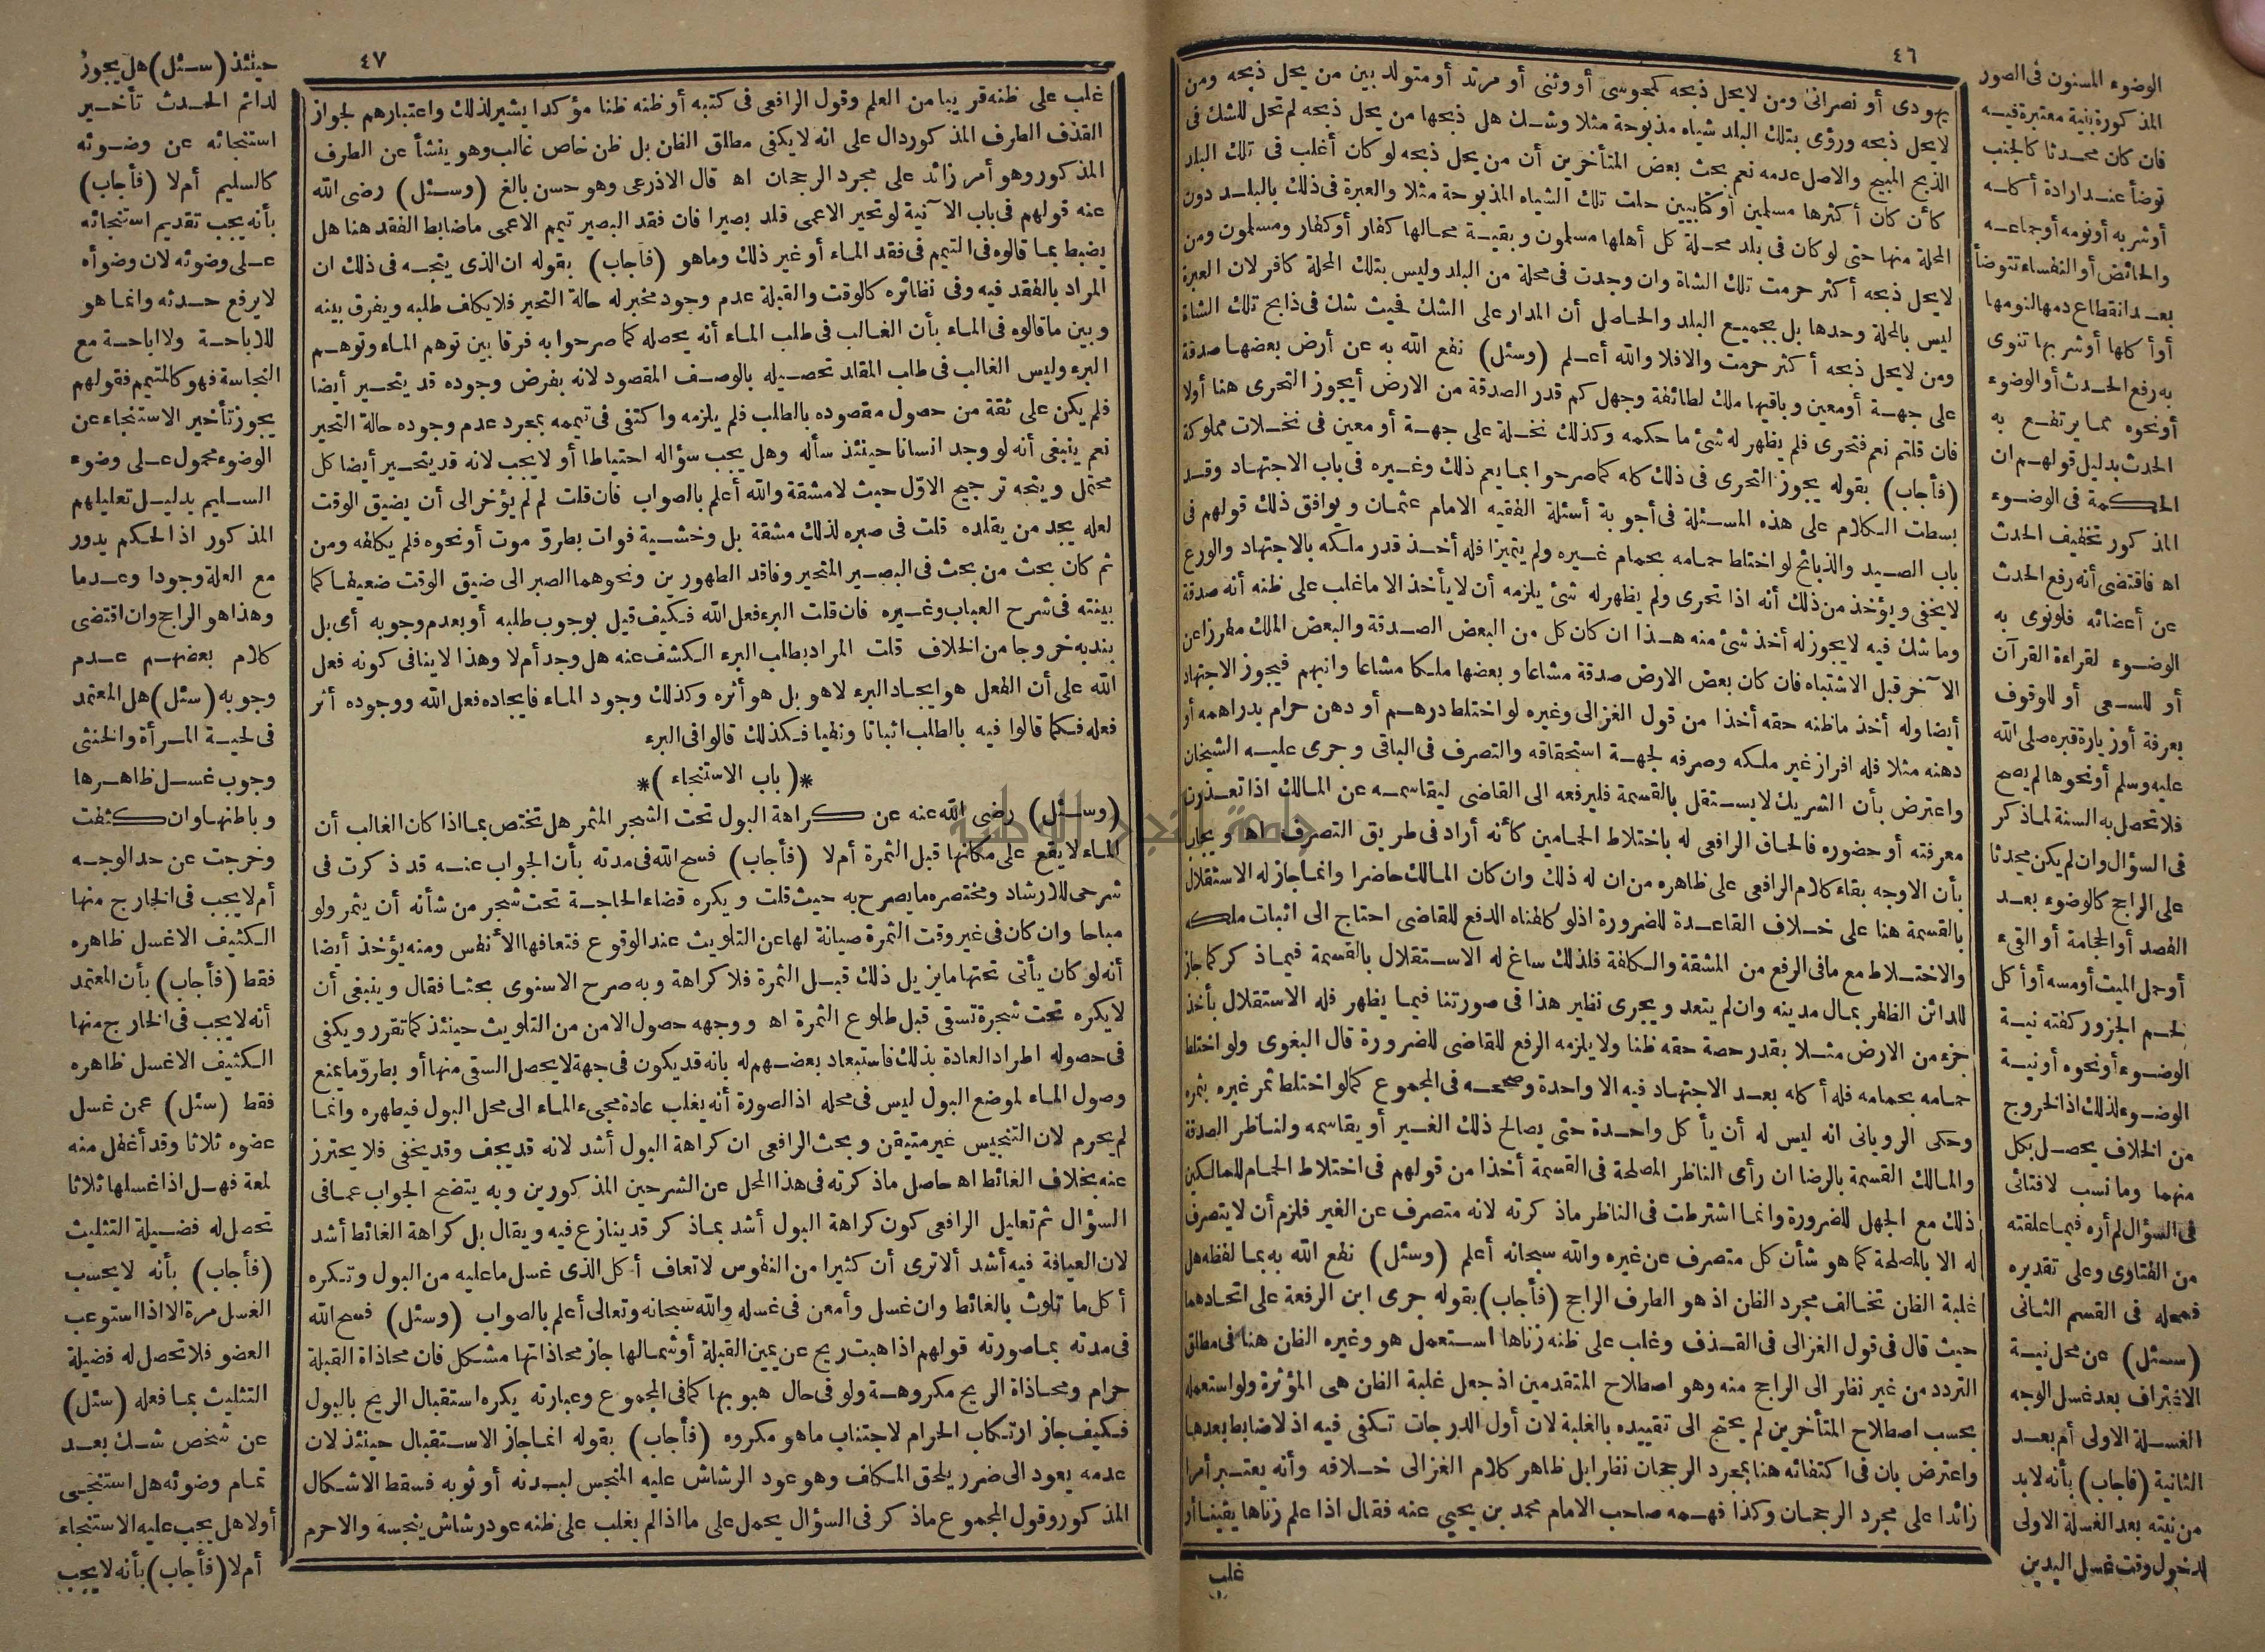 ٤٦
يهودى أو نصرانى ومن لا يحل ذبحه كمجوسى أو وثنى أو مرتد أو متولد بين من يحل ذبحه ومن
لا يحل ذبحه ورؤى بتلك البلد شياه مذبوحة مثلا وشك هل ذبحها من يحل ذبحه لم تحل للشك فى
الذبح المبيح والاصل عدمه نعم بحث بعض المتأخرين أن من يحل ذبحه لو كان أغلب فى تلك البلد
كأن كان أكثرها مسلمين أو كتابيين حلت تلك الشياه المذبوحة مثلا والعبرة فى ذلك بالبلد دون
المحلة منها حتى لو كان فى بلد محلة كل أهلها مسلمون وبقية محالها كفار أو كفار ومسلمون ومن
لا يحل ذبحه أكثر حرمت تلك الشاة وان وجدت فى محلة من البلد وليس بتلك المحلة كافر لان العبرة
ليس بالمحلة وحدها بل بجميع البلد والحاصل أن المدار على الشك فحيث شك فى ذابح تلك الشاة
ومن لا يحل ذبحه أكثر حرمت والافلا والله أعلم (وسئل) نفع الله به عن أرض بعضها صدقة
على جهة أو معين وباقيها ملك لطائفة وجهل كم قدر الصدقة من الارض أيجوز التحرى هنا أولا
فان قلتم نعم فتحرى فلم يظهر له شئ ما حكمه وكذلك نخلة على جهة أو معين فى نخلات مملوكة
(فأجاب) بقوله يجوز التحرى فى ذلك كله كما صرحوا بما يعم ذلك وغيره فى باب الاجتهاد وقد
بسطت الكلام على هذه المسئلة فى أجوبة أسئلة الفقيه الامام عثمان ويوافق ذلك قولهم فى
باب الصيد والذبائح لو اختلط حمامه بحمام غيره ولم يتميزا فله أخذ قدر ملكه بالاجتهاد والورع
لا يخفى ويؤخذ من ذلك أنه اذا تحرى ولم يظهر له شئ يلزمه أن لا يأخذ الا ما غلب على ظنه أنه صدقة
وما شك فيه لا يجوز له أخذ شئ منه هذا ان كان كل من البعض الصدقة والبعض الملك مطرزا عن
الآخر قبل الاشتباه فان كان بعض الارض صدقة مشاعا وبعضها ملكا مشاعا وانبهم فيجوز الاجتهاد
أيضا وله أخذ ما ظنه حقه أخذا من قول الغزالى وغيره لو اختلط درهم أو دهن حرام بدراهمه أو
دهنه مثلا فله افراز غير ملكه وصرفه لجهة استحقاقه والتصرف فى الباقى وجرى عليه الشيخان
واعترض بأن الشريك لا يستقل بالقسمة فليرفعه الى القاضى ليقاسمه عن المالك اذا تعذرت
معرفته أو حضوره فالحاق الرافعى له باختلاط الحمامين كأنه أراد فى طريق التصرف اه ويجاب
بأن الاوجه بقاء كلام الرافعى على ظاهره من ان له ذلك وان كان المالك حاضرا وانما جاز له الاستقلال
بالقسمة هنا على خلاف القاعدة للضرورة اذ لو كلفناه الدفع للقاضى احتاج الى اثبات ملكه
والاختلاط مع ما فى الرفع من المشقة والكلفة فلذلك ساغ له الاستقلال بالقسمة فيما ذكر كما جاز
للدائن الظفر بمال مدينه وان لم يتعد ويجرى نظير هذا فى صورتنا فيما يظهر فله الاستقلال بأخذ
جزء من الارض مثلا بقدر حصة حقه ظنا ولا يلزمه الرفع للقاضى للضرورة قال البغوى ولو اختلط
حمامه بحمامه فله أكله بعد الاجتهاد فيه الا واحدة وصححه فى المجموع كما لو اختلط تمر غيره بتمره
وحكى الرويانى انه ليس له أن يأكل واحدة حتى يصالح ذلك الغير أو يقاسمه ولناظر الصدقة
والمالك القسمة بالرضا ان رأى الناظر المصلحة فى القسمة أخذا من قولهم فى اختلاط الحمام للمالكين
ذلك مع الجهل للضرورة وانما اشترطت فى الناظر ماذكرته لانه متصرف عن الغير فلزم أن لا يتصرف
له الا بالمصلحة كما هو شأن كل متصرف عن غيره والله سبحانه أعلم (وسئل) نفع الله به بما لفظه هل
غلبة الظن تخالف مجرد الظن اذ هو الطرف الراجح (فأجاب) بقوله جرى ابن الرفعة على اتحادهما
حيث قال فى قول الغزالى فى القذف وغلب على ظنه زناها استعمل هو وغيره الظن هنا فى مطلق
التردد من غير نظر الى الراجح منه وهو اصطلاح المتقدمين اذ جعل غلبة الظن هى المؤثرة ولو استعمله
بحسب اصطلاح المتأخرين لم يحتج الى تقييده بالغلبة لان أول الدرجات تكفى فيه اذ لا ضابط بعدها
واعترض بان فى اكتفائه هنا بمجرد الرجحان نظرا بل ظاهر كلام الغزالى خلافه وأنه يعتبر أمرا
زائدا على مجرد الرجحان وكذا فهمه صاحب الامام محمد بن يحيى عنه فقال اذا علم زناها يقينا أو
غلب
الوضوء المسنون فى الصور
المذكورة بنية معتبرة فيه
فان كان محدثا كالجنب
توضأ عند ارادة أكله
أو شربه أو نومه أو جماعه
والحائض أو النفساء تتوضأ
بعد انقطاع دمها لنومها
أو أكلها أو شربها تنوى
به رفع الحدث أو الوضوء
أو نحوه مما يرتفع به
الحدث بدليل قولهم ان
الحكمة فى الوضوء
المذكور تخفيف الحدث
اه فاقتضى أنه رفع الحدث
عن أعضائه فلو نوى به
الوضوء لقراءة القرآن
أو للسعى أو للوقوف
بعرفة أو زيارة قبره صلى الله
عليه وسلم أو نحوها لم يصح
فلا تحصل به السنة لما ذكر
فى السؤال وان لم يكن محدثا
على الراجح كالوضوء بعد
الفصد أو الحجامة أو القىء
أو حمل الميت أو مسه أو أكل
لحم الجزور كفته نية
الوضوء أو نحوه أو نية
الوضوء لذلك اذ الخروج
من الخلاف يحصل بكل
منهما وما نسب لافتائى
فى السؤال لم أره فيما علقته
من الفتاوى وعلى تقديره
فمحله فى القسم الثانى
(سئل) عن محل نية
الاغتراف بعد غسل الوجه
الغسلة الاولى أم بعد
الثانية (فأجاب) بأنه لا بد
من نيته بعد الغسلة الاولى
لدخول وقت غسل اليدين
٤٧
غلب على ظنه قريبا من العلم وقول الرافعى فى كتبه أو ظنه ظنا مؤكدا يشير لذلك واعتبارهم لجواز
القذف الطرف المذكور دال على انه لا يكفى مطلق الظن بل ظن خاص غالب وهو ينشأ عن الطرف
المذكور وهو أمر زائد على مجرد الرجحان اه قال الاذرعى وهو حسن بالغ (وسئل) رضى الله
عنه قولهم فى باب الآنية لو تحير الاعمى قلد بصيرا فان فقد البصير تيمم الاعمى ما ضابط الفقد هنا هل
يضبط بما قالوه فى التيمم فى فقد الماء أو غير ذلك وما هو (فأجاب) بقوله ان الذى يتجه فى ذلك ان
المراد بالفقد فيه وفى نظائره كالوقت والقبلة عدم وجود مخبر له حالة التحير فلا يكلف طلبه ويفرق بينه
وبين ما قالوه فى الماء بأن الغالب فى طلب الماء أنه يحصله كما صرحوا به فرقا بين توهم الماء وتوهم
البرء وليس الغالب فى طلب المقلد تحصيله بالوصف المقصود لانه بفرض وجوده قد يتحير أيضا
فلم يكن على ثقة من حصول مقصوده بالطلب فلم يلزمه واكتفى فى تيممه بمجرد عدم وجوده حالة التحير
نعم ينبغى أنه لو وجد انسانا حينئذ سأله وهل يجب سؤاله احتياطا أو لا يجب لانه قد يتحير أيضا كل
محتمل ويتجه ترجيح الاوّل حيث لا مشقة والله أعلم بالصواب فان قلت لم لم يؤخر الى أن يضيق الوقت
لعله يجد من يقلده قلت فى صبره لذلك مشقة بل وخشية فوات بطروّ موت أو نحوه فلم يكلفه ومن
ثم كان بحث من بحث فى البصير المتحير وفاقد الطهورين ونحوهما الصبر الى ضيق الوقت ضعيفا كما
بينته فى شرح العباب وغيره فان قلت البرء فعل الله فكيف قيل بوجوب طلبه أو بعدم وجوبه أى بل
بندبه خروجا من الخلاف قلت المراد بطلب البرء الكشف عنه هل وجد أم لا وهذا لا ينافى كونه فعل
الله على أن الفعل هو ايجاد البرء لا هو بل هو أثره وكذلك وجود الماء فايجاده فعل الله ووجوده أثر
فعله فكما قالوا فيه بالطلب اثباتا ونفيا فكذلك قالوا فى البرء
*(باب الاستنجاء)*
(وسئل) رضى الله عنه عن كراهة البول تحت الشجر المثمر هل تختص بما اذا كان الغالب أن
الماء لا يقع على مكانها قبل الثمرة أم لا (فأجاب) فسح الله فى مدته بأن الجواب عنه قد ذكرت فى
شرحى للارشاد ومختصره ما يصرح به حيث قلت ويكره قضاء الحاجة تحت شجر من شأنه أن يثمر ولو
مباحا وان كان فى غير وقت الثمرة صيانة لها عن التلويث عند الوقوع فتعافها الأنفس ومنه يؤخذ أيضا
أنه لو كان يأتى تحتها ما يزيل ذلك قبل الثمرة فلا كراهة وبه صرح الاسنوى بحثا فقال وينبغى أن
لا يكره تحت شجرة تسقى قبل طلوع الثمرة اه ووجهه حصول الامن من التلويث حينئذ كما تقرر ويكفى
فى حصوله اطراد العادة بذلك فاستبعاد بعضهم له بانه قد يكون فى جهة لا يحصل السقى منها أو بطروّ ما يمنع
وصول الماء لموضع البول ليس فى محله اذ الصورة أنه يغلب عادة مجىء الماء الى محل البول فيطهره وانما
لم يحرم لان التنجيس غير متيقن وبحث الرافعى ان كراهة البول أشد لانه قد يجف وقد يخفى فلا يحترز
عنه بخلاف الغائط اه حاصل ما ذكرته فى هذا المحل عن الشرحين المذكورين وبه يتضح الجواب عما فى
السؤال ثم تعليل الرافعى كون كراهة البول أشد بما ذكر قد ينازع فيه ويقال بل كراهة الغائط أشد
لان العيافة فيه أشد ألا ترى أن كثيرا من النفوس لا تعاف أكل الذى غسل ما عليه من البول وتكره
أكل ما تلوث بالغائط وان غسل وأمعن فى غسله والله سبحانه وتعالى أعلم بالصواب (وسئل) فسح الله
فى مدته بما صورته قولهم اذا هبت ريح عن يمين القبلة أو شمالها جاز محاذاتها مشكل فان محاذاة القبلة
حرام ومحاذاة الريح مكروهة ولو فى حال هبوبها كما فى المجموع وعبارته يكره استقبال الريح بالبول
فكيف جاز ارتكاب الحرام لاجتناب ما هو مكروه (فأجاب) بقوله انما جاز الاستقبال حينئذ لان
عدمه يعود الى ضرر يلحق المكلف وهو عود الرشاش عليه المنجس لبدنه أو ثوبه فسقط الاشكال
المذكور وقول المجموع ما ذكر فى السؤال يحمل على ما اذا لم يغلب على ظنه عود رشاش ينجسه والاحرم
حينئذ (سئل) هل يجوز
لدائم الحدث تأخير
استنجائه عن وضوئه
كالسليم أم لا (فأجاب)
بأنه يجب تقديم استنجائه
على وضوئه لان وضوأه
لا يرفع حدثه وانما هو
للاباحة ولا اباحة مع
النجاسة فهو كالمتيمم فقولهم
يجوز تأخير الاستنجاء عن
الوضوء محمول على وضوء
السليم بدليل تعليلهم
المذكور اذ الحكم يدور
مع العلة وجودا وعدما
وهذا هو الراجح وان اقتضى
كلام بعضهم عدم
وجوبه (سئل) هل المعتمد
فى لحية المرأة والخنثى
وجوب غسل ظاهرها
وباطنها وان كثفت
وخرجت عن حد الوجه
أم لا يجب فى الخارج منها
الكثيف الا غسل ظاهره
فقط (فأجاب) بأن المعتمد
أنه لا يجب فى الخارج منها
الكثيف الا غسل ظاهره
فقط (سئل) عمن غسل
عضوه ثلاثا وقد أغفل منه
لمعة فهل اذا غسلها ثلاثا
تحصل له فضيلة التثليث
(فأجاب) بأنه لا يحسب
الغسل مرة الا اذا استوعب
العضو فلا تحصل له فضيلة
التثليث بما فعله (سئل)
عن شخص شك بعد
تمام وضوئه هل استنجى
أولا هل يجب عليه الاستنجاء
أم لا (فأجاب) بأنه لا يجب
جامعة النجاح الوطنية